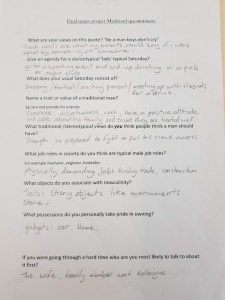 Final major project Manhood questionnaire
What are your views on this quote? "Be a man boys don't cry"
These words are what my parents would say if I was
upset by something at
Give an agenda for a stereotypical 'lads' typical Saturday?
go to a sporting event and end up drinking in a pub
or night club
What does your usual Saturday consist of?
Shopping / football / visiting parent / meeting up with friends
for a drink.
Name a trait or value of a traditional man?
Eg care and provide for a family
have a positive attitude
and care about his family and ensure they are treated well
What traditional / stereotypical views do you think people think a man should
have?
Strength be prepared to fight to put his point across.
What job roles in society do you think are typical male job roles?
For example mechanic, engineer, footballer
Physically demanding jobs building trade, construction
What objects do you associate with masculinity?
Tools. Strong objects like monuments.
Stone.
What possessions do you personally take pride in owning?
gadgets. car. Home.
If you were going through a hard time who are you most likely to talk to about
it first?
The wife, family member work colleague